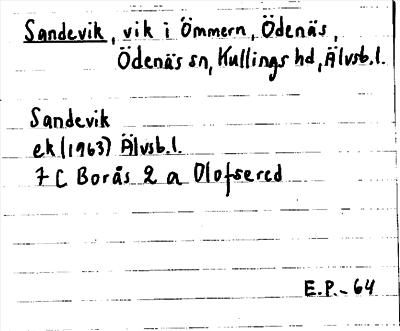 Sandevik, vik i Ömmern, Ödenäs,
Ödenäs sn, Kullings hd, Älvsb.l.
Sandevik
ek (1963) Älvsb.l.
7 C Borås 2 a Olofsered
E.P.-64